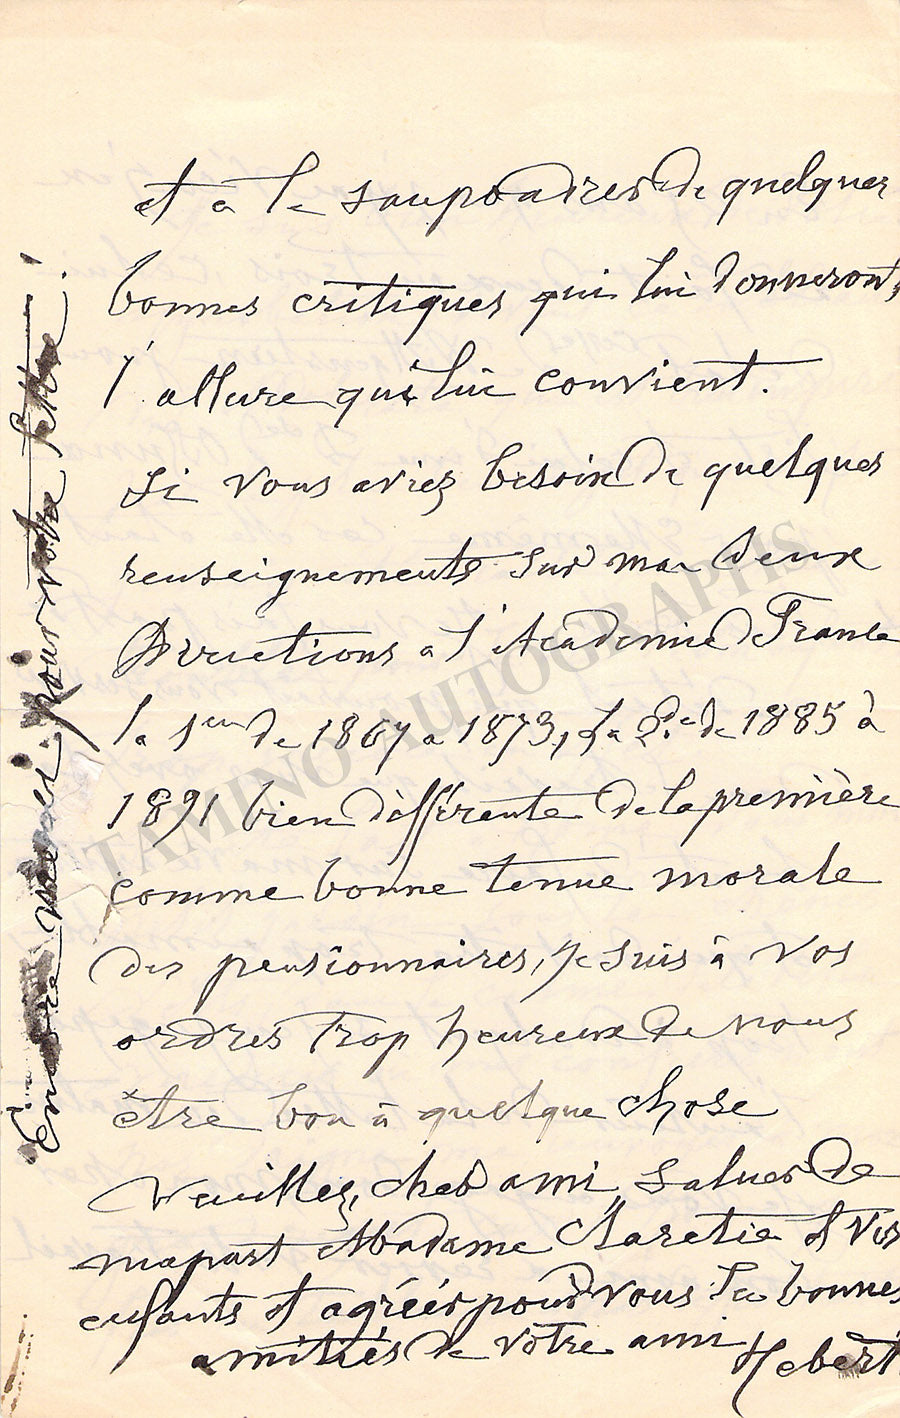 et à le saupoudrer de quelques
bonnes critiques qui lui donneront
l'allure qui lui convient.
Si vous aviez besoin de quelques
renseignements sur mes deux
Directions a l'Academie France
la 1ere de 1867 a 1873, La 2e de 1885 à
1891 bien différente de la première
comme bonne tenue morale
des pensionnaires, je suis à vos
ordres trop heureux de vous
être bon à quelque chose
Veuillez, cher ami, saluer de
ma part Madame Claretie et vos
enfants et agréer pour vous les bonnes
amitiés de votre ami Hebert
Encore merci pour votre lettre!
TAMINO AUTOGRAPHS